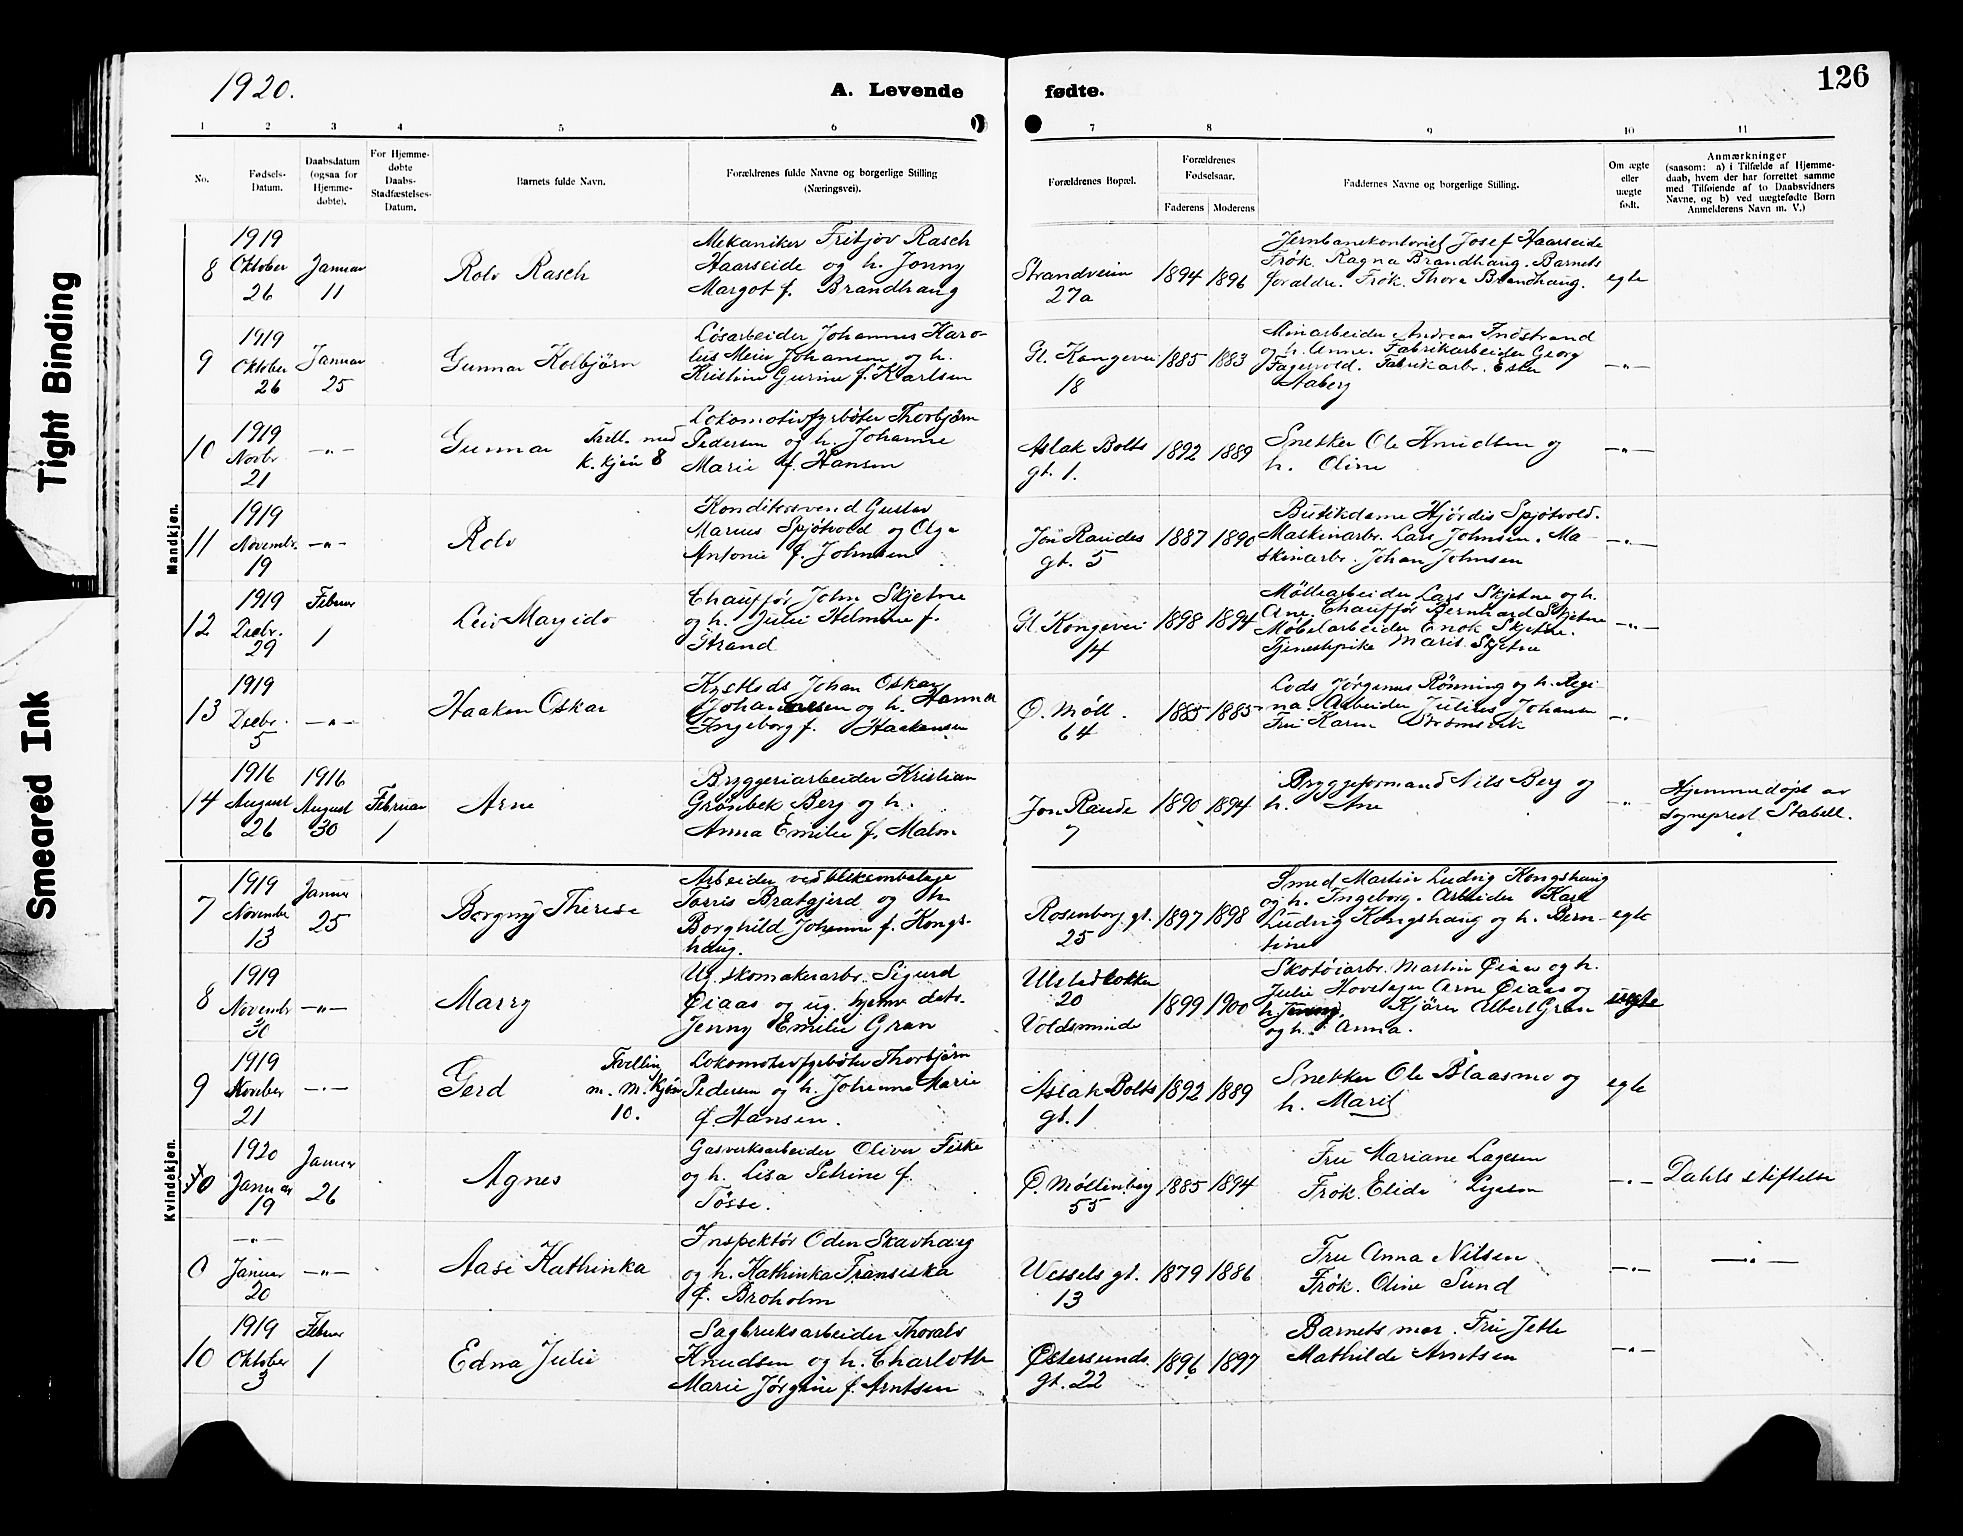 Tight Binding
Smeared Ink
1920.
A. Levende fødte.
126
1 2 3 4 5 6 7 8 9 10 11
No.
Fødsels-
Datum.
Daabsdatum
(ogsaa for
Hjemme-
døbte).
For Hjemme-
døbte
Daabs-
Stadfæstelses-
Datum.
Barnets fulde Navn.
Forældrenes fulde Navne og borgerlige Stilling
(Næringsvei).
Forældrenes Bopæl.
Forældrenes
Fødselsaar.
Faderens Moderens
Faddernes Navne og borgerlige Stilling.
Om ægte
eller
uægte
født.
Anmærkninger
(saasom: a) i Tilfælde af Hjemme-
daab, hvem der har forrettet samme
med Tilføiende af to Daabsvidners
Navne, og b) ved uægtefødte Børn
Anmelderens Navn m. V.)
Mandkjøn.
8
1919
Oktober
26
Januar
11
Rolv Rasch
Mekaniker Fritjov Rasch
Haarseide og h. Jonny
Margot f. Brandhaug
Strandveien
27a
1894 1896
Jernbanekontorist Josef Haarseide
Frøk. Ragna Brandhaug. Barnets
foraldre. Frøk. Thora Brandhaug.
egte
9
1919
Oktober
26
Januar
25
Gunnar Kolbjørn
Løsarbeider Johannes Karo-
lius Meier Johansen og h.
Kristine Gurine f. Karlsen
Gl. Kongevei
18
1885 1883
Minarbeider Andreas
og h. Anne. Fabrikarbeider Georg
Fagervold. Fabrikarbr.
Aaberg
—"—
10
1919
Novbr.
21
—"—
Gunnar
Tvill. med
k. kjøn 8
Lokomotivfyrbøter Thorbjørn
Pedersen og h. Johanne
Marie f. Hansen
Aslak Bolts
gt. 1.
1892 1889
Snekker Ole Knudsen og
h. Oline
—"—
11
1919
Novembr.
19
—"—
Rolv
Konditorsvend Gustav
Marius Spjøtvold og Olga
Antonie f. Johnsen
Jon Raudes
gt. 5
1887 1890
Butikdame Hjørdis Spjøtvold.
Maskinarbr. Lars Johnsen. Ma-
skinarbr. Johan Johnsen
—"—
12
1919
Desbr.
29
Februar
1
Leiv Margido
Chauffør John Skjetne
og h. Julie Helmine f.
Strand
Gl. Kongevei
14
1898 1894
Møllearbeider Lars Skjetne og h.
Ane. Chauffør Bernhard Skjetne
Møbelarbeider Enok Skjetne.
Tjenestepike Marit Skjetne
—"—
13
1919
Desbr.
5
—"—
Haakon Oskar
Johan Oskar
Johannesen og h. Hanna
Ingeborg f. Haakensen
Ø. Møll.
64
1885 1885
Lods Jørgenus Rønning og h. Regi-
na. Arbeider Julius Johansen
Fru Karen Strømsvik
—"—
14
1916
August
26
1916
August
30
Februar
1
Arne
Bryggeriarbeider Kristian
Grønbek Berg og h.
Anna Emilie f. Malm
Jon Raude
7
1890 1894
Bryggeformand Nils Berg og
h. Ane
"
Hjemmedøpt av
sogneprest Stabell.
Kvindekjøn.
7
1919
November
13
Januar
25
Borgny Therese
Arbeider ved blikemballage
Torris Bratgjerd og h.
Borghild Johanne f. Kongs-
haug.
Rosenborg gt.
25
1897 1898
Smed Martin Ludvig Kongshaug
og h. Ingeborg. Arbeider Karl
Ludvig Kongshaug og h. Bern-
tine
egte
8
1919
Novembr
30
—"—
Marry
Ug. skomakerarbr. Sigurd
Øiaas og ug. hjemv. dats.
Jenny Emilie Gran
Ulstadløkken
20
Voldsminde
1899 1900
Skotøiarbr. Martin Øiaas og h.
Julie Arne Øiaas og
h. Jenny. Kjører Albert Gran
og h. Anna.
uegte
9
1919
November
21
—"—
Gerd
Tvilling
m. M. Kjøn
10.
Lokomotivfyrbøter Thorbjørn
Pedersen og h. Johanne Marie
f. Hansen.
Aslak Bolts
gt. 1
1892 1889
Snekker Ole Blaasmo og
h. Marit
egte
10
1920
Januar
19
Januar
26
Agnes
Gasverksarbeider Oliver Fiske
og h. Lisa Petrine f.
Tøsse.
Ø. Møllenberg
55
1885 1894
Fru Mariane Lagesen
Frøk. Elida
—"—
Dahls stiftelse
0
—"—
Januar
20
—"—
Aase Kathinka
Inspektør Oden Skavhaug
og h. Kathinka Fransiska
f. Broholm
Wessels gt.
13
1879 1886
Fru Anna Nilsen
Frøk. Oline Sund
—"—
—"—
10
1919
Oktober
3
Februar
1
Edna Julie
Sagbruksarbeider Thoralv
Knudsen og h. Charlotte
Marie Jørgine f. Arntsen
Østersunds.
gt. 22
1896 1897
Barnets mor. Fru Jette
Mathilde Arntsen
—"—